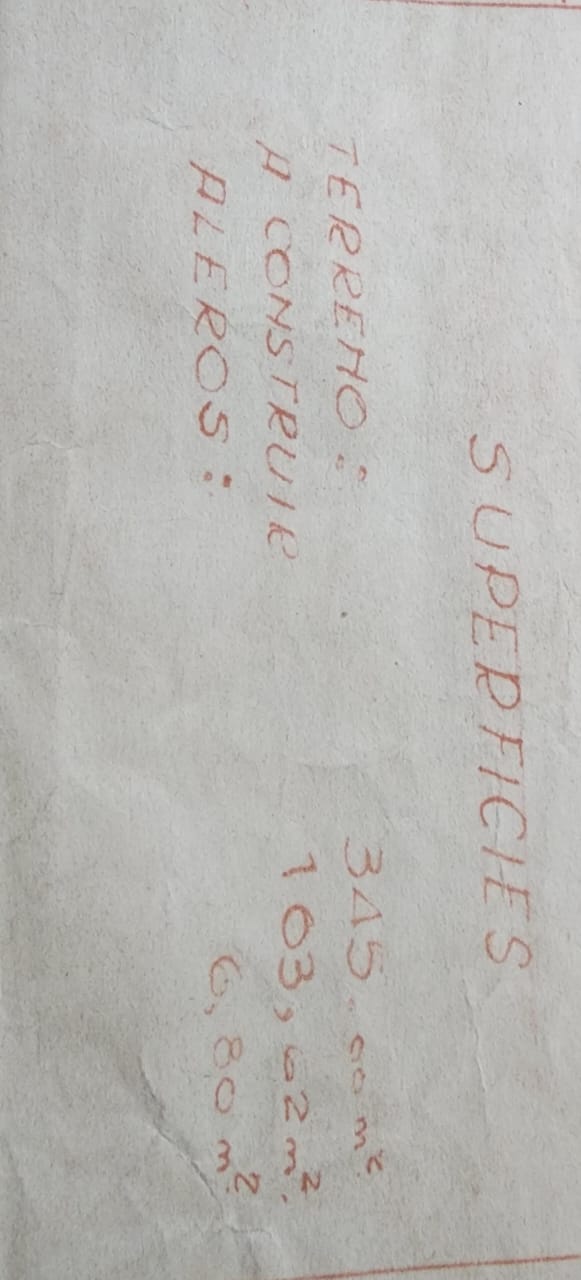 SUPERFICIES
TERRENO: 345.00 m²
A CONSTRUIR 103,62 m².
ALEROS: 6,80 m²